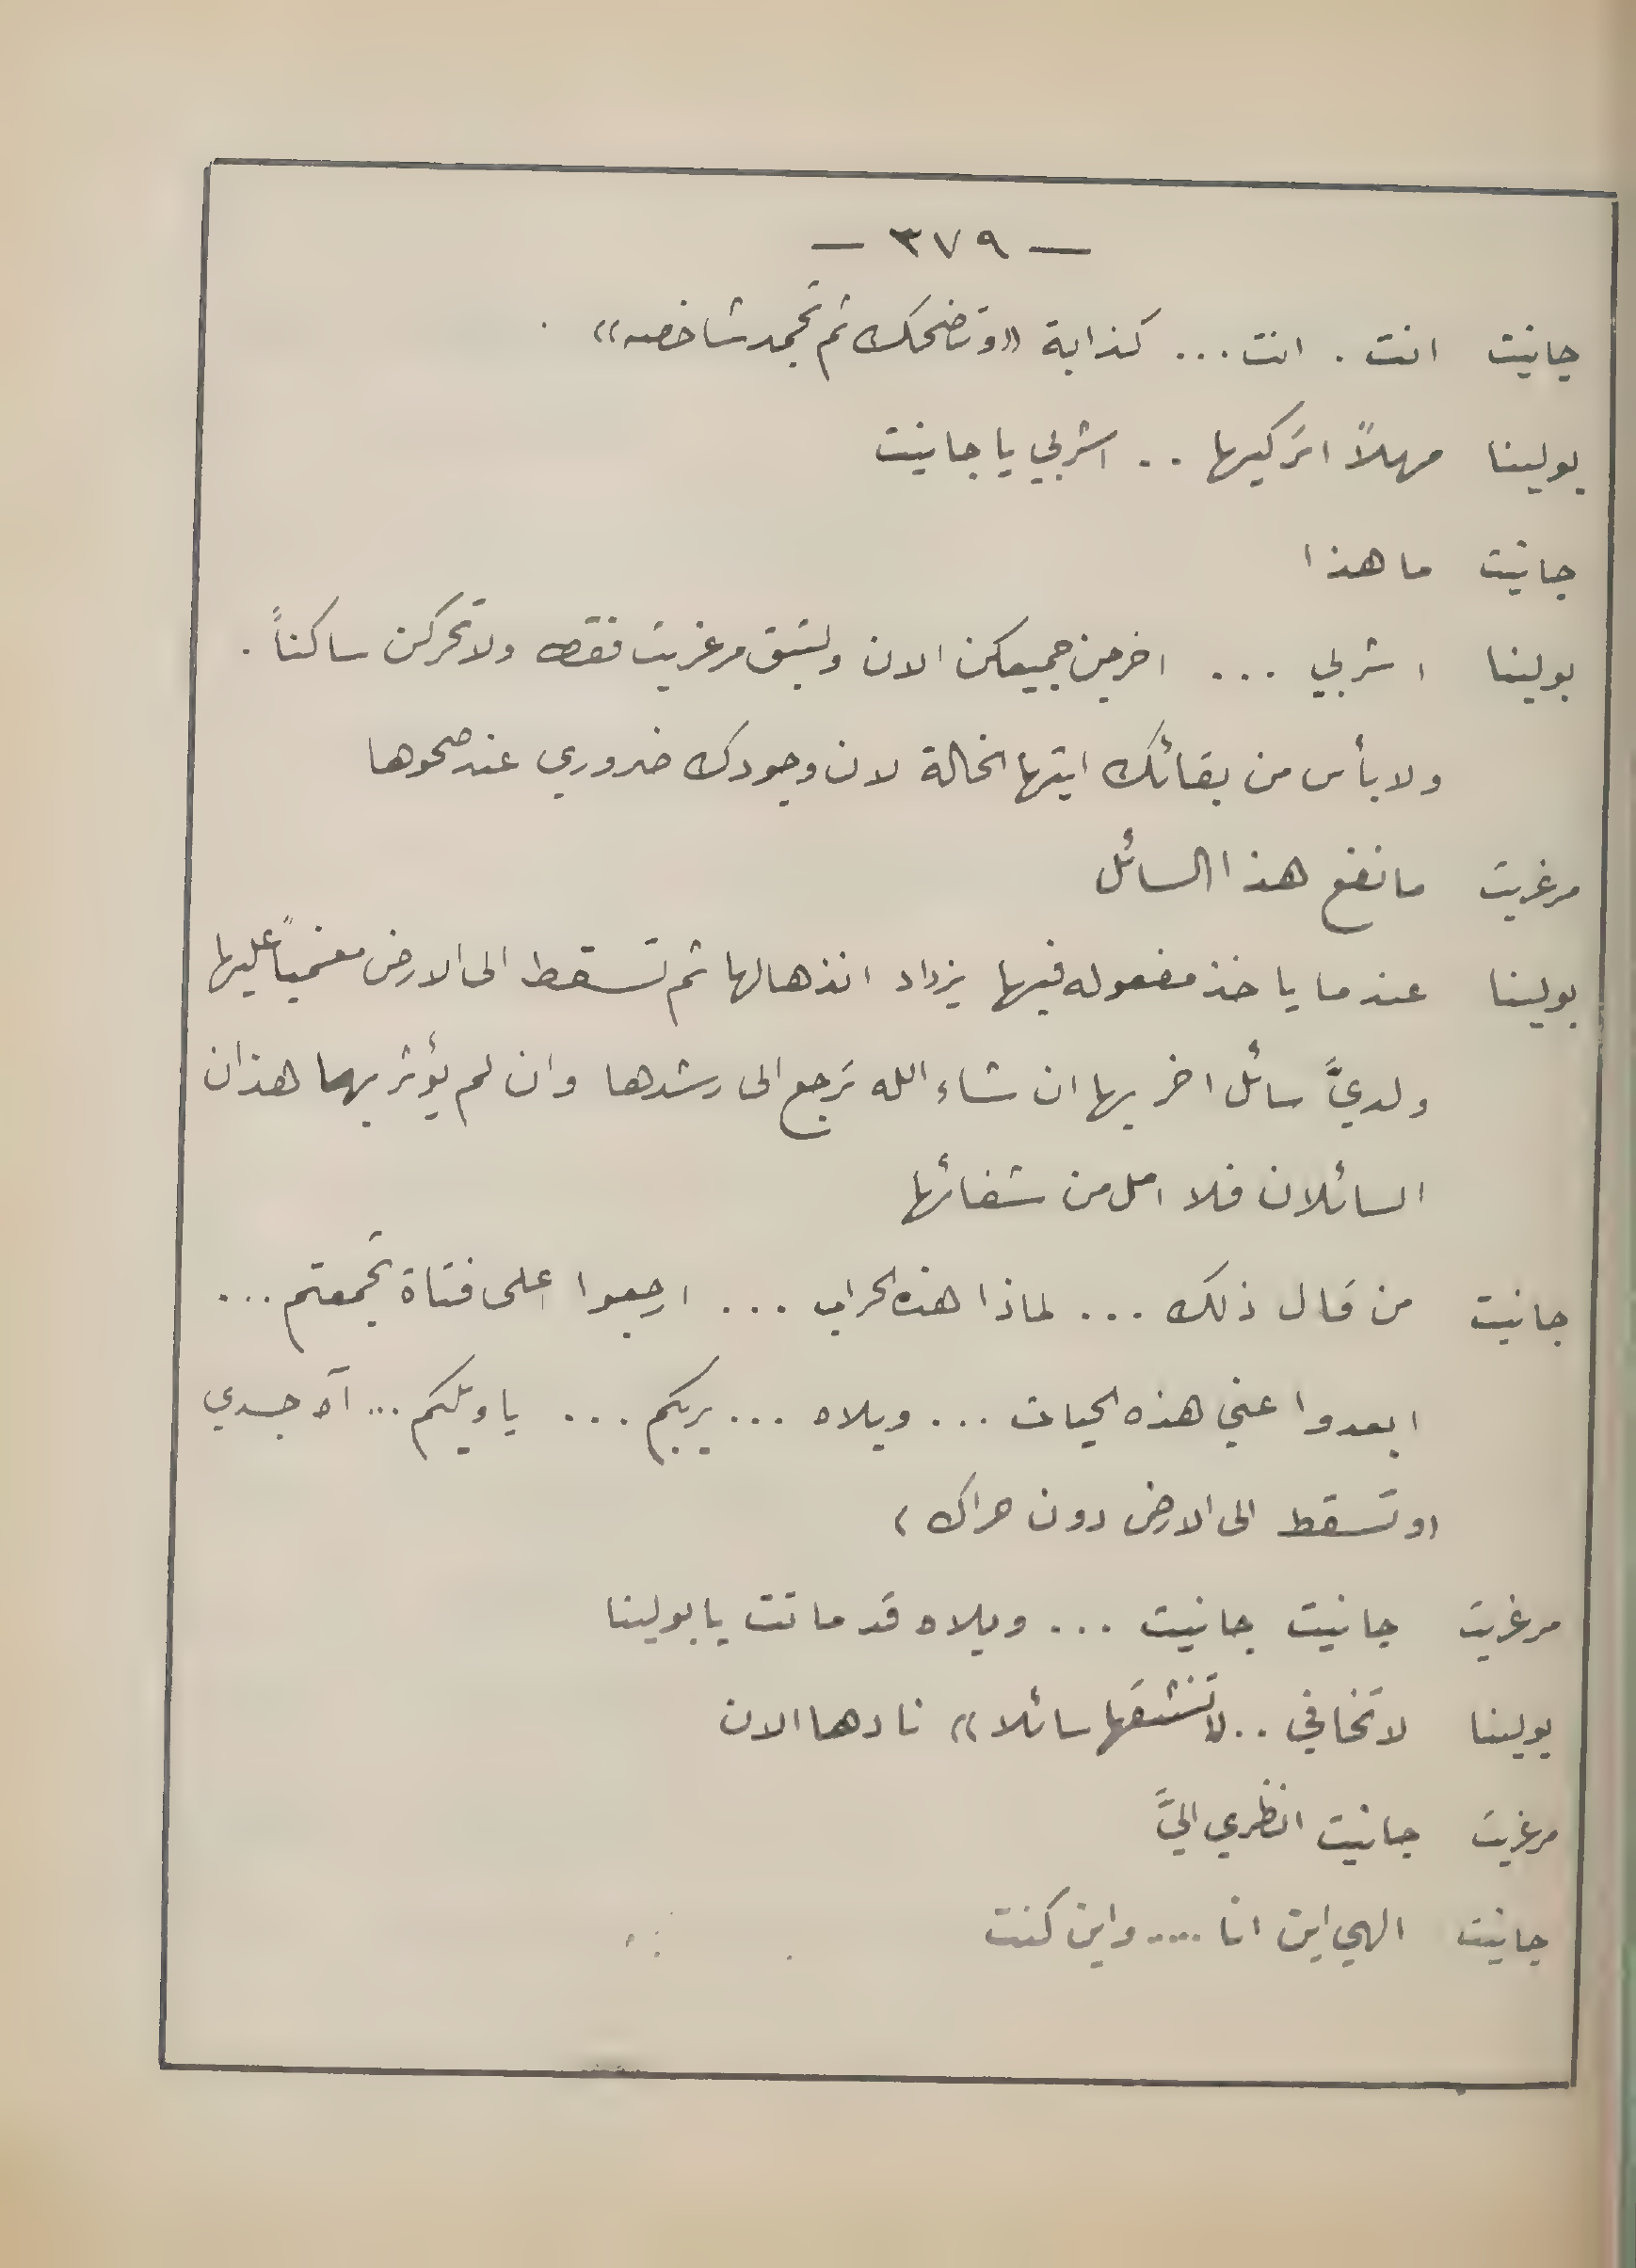 — ٣٧٩ —
جانيت انت . انت ... كذابة «وتضحك ثم تجمد شاخصه» .
بولينا مهلاً اتركيها .. اشربي يا جانيت
جانيت ما هذا
بولينا اشربي ... اخرجن جميعكن الان ولتبق مرغريت فقط ولا تحركن ساكناً .
ولا بأس من بقائك ايتها الخالة لان وجودك ضروري عند صحوها
مرغريت ما نفع هذا السائل
بولينا عندما ياخذ مفعوله فيها يزداد انذهالها ثم تسقط الى الارض مغمياً عليها
ولديَّ سائل اخر بها ان شاء الله ترجع الى رشدها وان لم يؤثر بهما هذان
السائلان فلا امل من شفائها
جانيت من قال ذلك ... لماذا هذه الحراب ... ارجعوا اعلى فتاة تجمعتم ...
ابعدوا عني هذه الحيات ... ويلاه ... بربكم ... يا ويلكم ... آه جسدي
(وتسقط الى الارض دون حراك)
مرغريت جانيت جانيت ... ويلاه قد ماتت يا بولينا
بولينا لا تخافي .. «تنشقها سائلا» نادها الان
مرغريت جانيت انظري اليَّ
جانيت الهي اين انا .... واين كنت